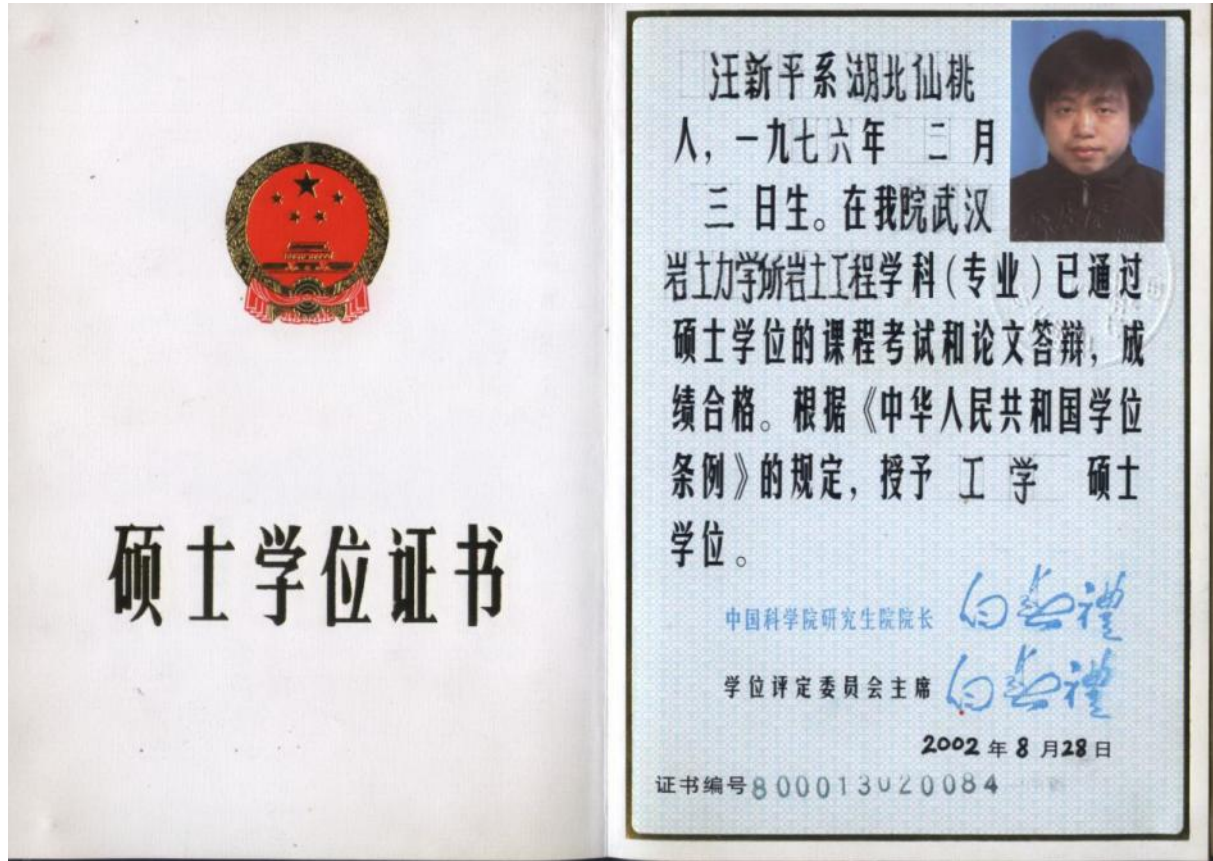 硕士学位证书
汪新平系湖北仙桃
人，一九七六年 二 月
三 日生。在我院武汉
岩土力学所岩土工程学科(专业)已通过
硕士学位的课程考试和论文答辩，成
绩合格。根据《中华人民共和国学位
条例》的规定，授予 工 学 硕士
学位。
中国科学院研究生院院长 白春禮
学位评定委员会主席 白春禮
2002 年 8 月28 日
证书编号800013020084